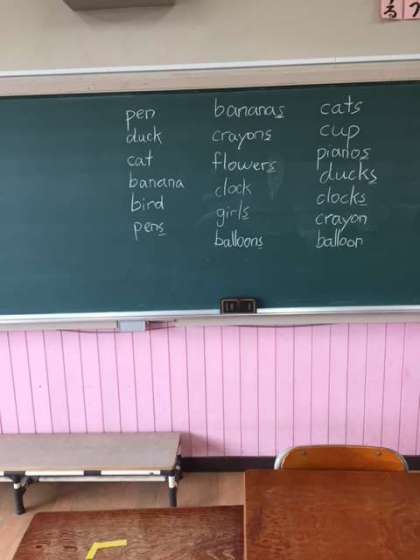 る
pen
duck
cat
banana
bird
pens
bananas
crayons
flowers
clock
girls
balloons
cats
cup
pianos
ducks
clocks
crayon
balloon